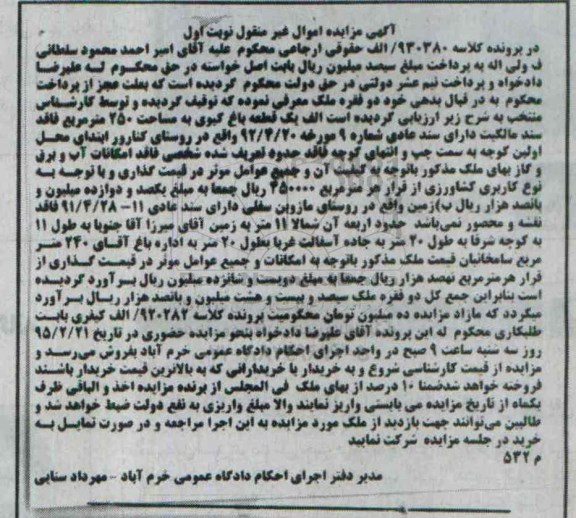 آگهی مزایده اموال غیر منقول نوبت اول
در پرونده کلاسه ۹۳۰۳۸۰/ الف حقوقی ارجاعی محکوم علیه آقای امیر احمد محمود سلطانی
ف ولی اله به پرداخت مبلغ سیصد میلیون ریال بابت اصل خواسته در حق محکوم له علیرضا
دادخواه و پرداخت نیم عشر دولتی در حق دولت محکوم گردیده است که بعلت عجز از پرداخت
محکوم به در قبال بدهی خود دو فقره ملک معرفی نموده که توقیف گردیده و توسط کارشناس
منتخب به شرح زیر ارزیابی گردیده است الف یک قطعه باغ کیوی به مساحت ۲۵۰ مترمربع فاقد
سند مالکیت دارای سند عادی شماره ۹ مورخه ۹۲/۴/۲۰ واقع در روستای کنارور ابتدای محل
اولین کوچه به سمت چپ و انتهای کوچه فاقد حدود تعریف شده شخصی فاقد امکانات آب و برق
و گاز بهای ملک مذکور باتوجه به کیفیت آن و جمیع عوامل موثر در قیمت گذاری و با توجه به
نوع کاربری کشاورزی از قرار هر مترمربع ۴۵۰۰۰۰ ریال جمعا به مبلغ یکصد و دوازده میلیون و
پانصد هزار ریال ب)زمین واقع در روستای مازوبن سفلی دارای سند عادی ۱۱– ۹۱/۴/۲۸ فاقد
نقشه و محصور نمی‌باشد حدود اربعه آن شمالا ۱۱ متر به زمین آقای میرزا آقا جنوبا به طول ۱۱
به کوچه شرقا به طول ۲۰ متر به جاده آسفالت غربا بطول ۲۰ متر به اداره باغ آقای ۲۴۰ متر
مربع سامخانیان قیمت ملک مذکور باتوجه به امکانات و جمیع عوامل موثر در قیمت گذاری از
قرار هرمترمربع نهصد هزار ریال جمعا به مبلغ دویست و شانزده میلیون ریال برآورد گردیده
است بنابراین جمع کل دو فقره ملک سیصد و بیست و هشت میلیون و پانصد هزار ریال برآورد
میگردد که مازاد مزایده ده میلیون تومان محکومیت پرونده کلاسه ۹۲۰۲۸۲/ الف کیفری بابت
طلبکاری محکوم له این پرونده آقای علیرضا دادخواه بنحو مزایده حضوری در تاریخ ۹۵/۲/۲۱
روز سه شنبه ساعت ۹ صبح در واحد اجرای احکام دادگاه عمومی خرم آباد بفروش می‌رسد و
مزایده از قیمت کارشناسی شروع و به خریدار یا خریدارانی که به بالاترین قیمت خریدار باشند
فروخته خواهد شدضمنا ۱۰ درصد از بهای ملک فی المجلس از برنده مزایده اخذ و الباقی ظرف
یکماه از تاریخ مزایده می بایستی واریز نمایند والا مبلغ واریزی به نفع دولت ضبط خواهد شد و
طالبین می‌توانند جهت بازدید از ملک مورد مزایده به این اجرا مراجعه و در صورت تمایل به
خرید در جلسه مزایده شرکت نمایید
م ۵۳۲
مدیر دفتر اجرای احکام دادگاه عمومی خرم آباد –مهرداد سنایی